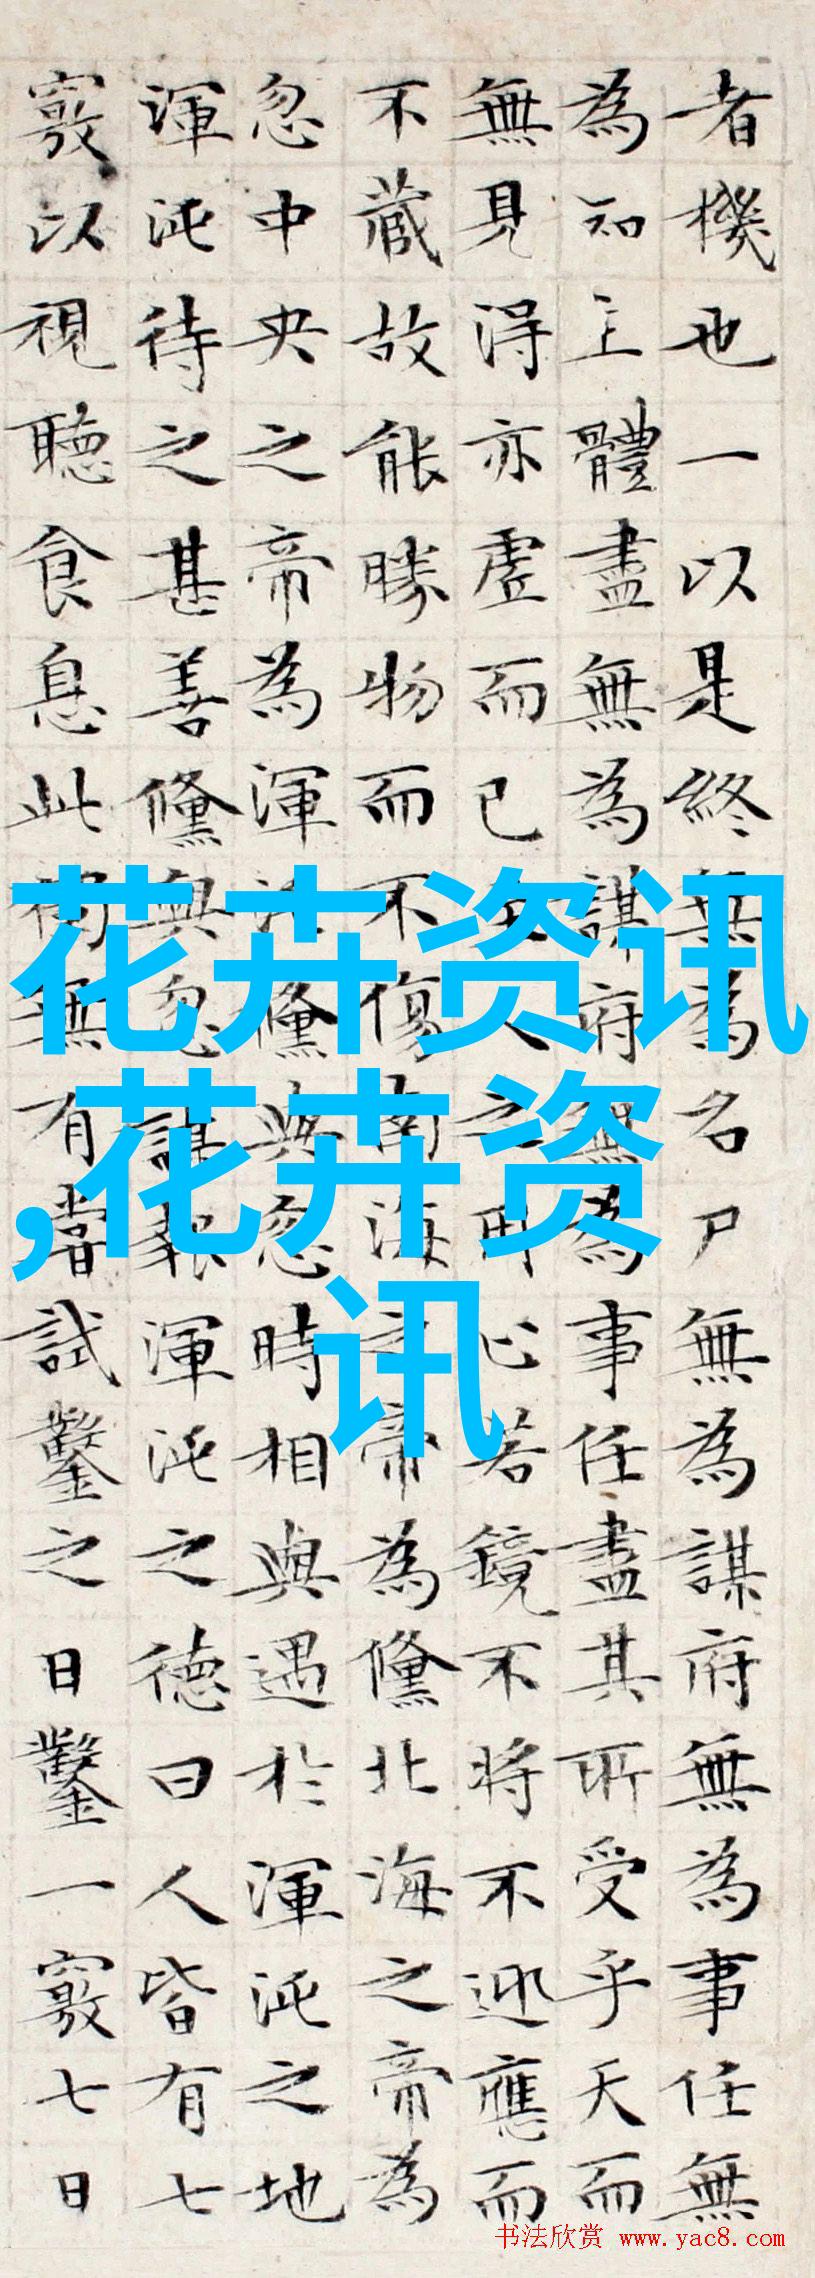 者機也一以是終無為名尸無為謀府無為事任無
為知主體盡無為謀府無為事任盡其所受乎天而
無見得亦虛而已至人之用心若鏡不將不迎應而
不藏故能勝物而不傷南海之帝為儵北海之帝為
忽中央之帝為渾沌儵與忽時相與遇於渾沌之地
渾沌待之甚善儵與忽謀報渾沌之德曰人皆有七
竅以視聽食息此獨無有嘗試鑿之日鑿一竅七日
花卉资讯
,花卉资
讯
书法欣赏 www.yac8.com